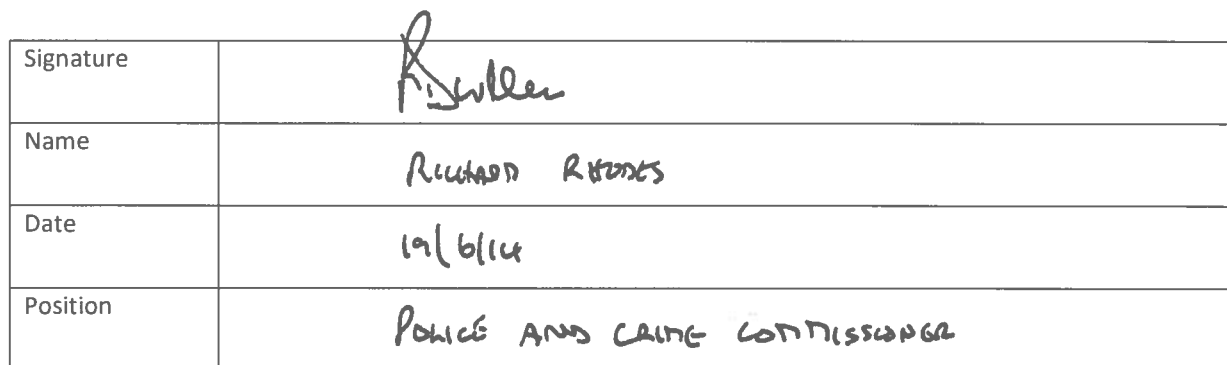 Signature
Name RICHARD RHODES
Date 19/6/14
Position POLICE AND CRIME COMMISSIONER